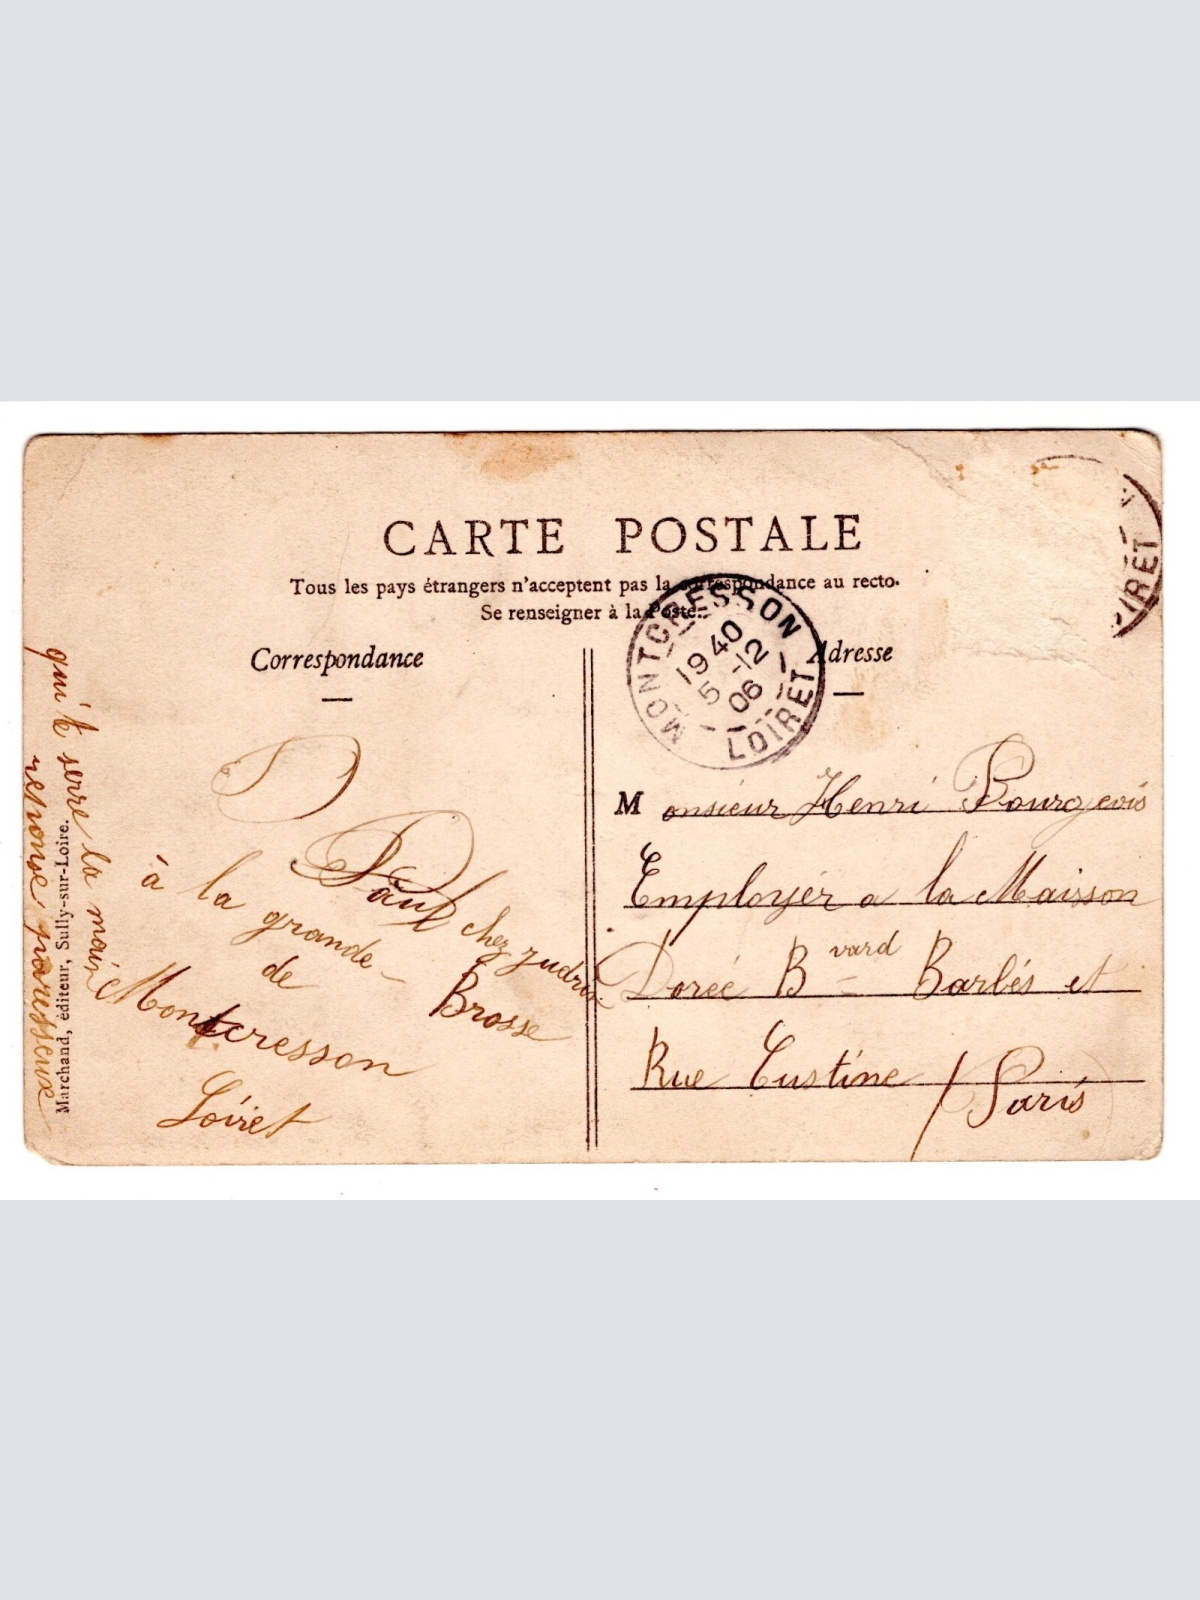 CARTE POSTALE
Tous les pays étrangers n'acceptent pas la correspondance au recto.
Se renseigner à la Poste.
Correspondance
Adresse
MONTCRESSON
19 40
5 -12
06
LOIRET
OIRET
Paul chez
à la grande Brosse
de
Montcresson
Loiret
qui te serre la main
reponse paresseux
Marchand, éditeur, Sully-sur-Loire.
Monsieur Henri Bourgeois
Employer a la Maisson
Dorée Bvard Barbés et
Rue Custine / Paris